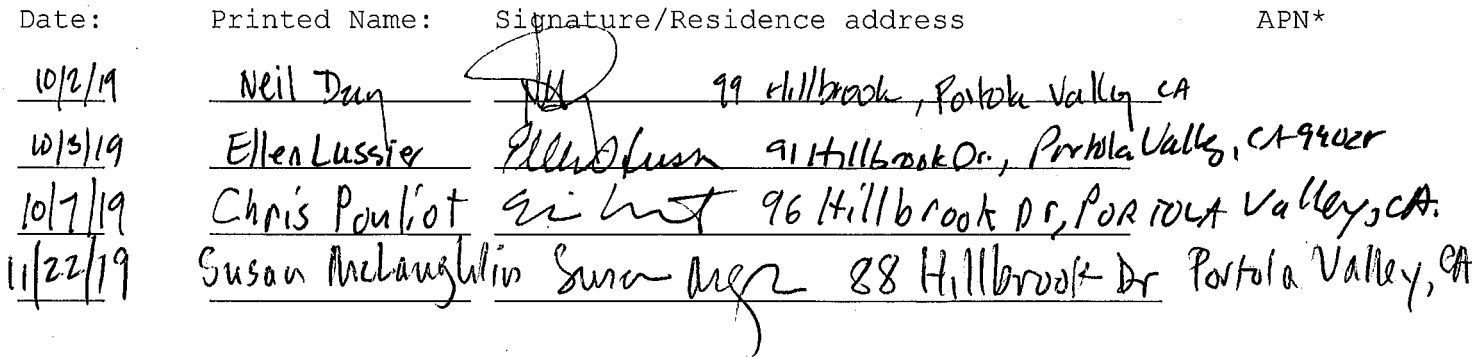 Date: Printed Name: Signature/Residence address APN*
10/2/19 Neil Day 99 Hillbrook, Portola Valley CA
10/3/19 Ellen Lussier 91 Hillbrook Dr., Portola Valley, CA 94028
10/7/19 Chris Pouliot 96 Hillbrook Dr, PORTOLA Valley, CA.
11/22/19 Susan McLaughlin Susan 88 Hillbrook Dr Portola Valley, CA